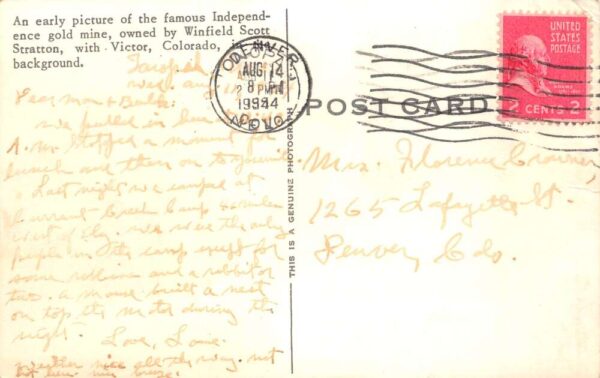 An early picture of the famous Independ-
ence gold mine, owned by Winfield Scott
Stratton, with Victor, Colorado, in
background.
Dear Mom &
We pulled in
stopped a moment for
lunch and then on to
Last night we camped at
Currant Creek Camp
west of Ely. We were the only
people in the camp except for
some robbins and a rabbit or
two. A mouse built a nest
on top the motor during the
night.
Love,
Weather nice all the way. not
THIS IS A GENUINE PHOTOGRAPH
DENVER
AUG 14
8 PM
1944
COLO.
POST CARD
UNITED
STATES
POSTAGE
ADAMS
2 CENTS 2
Mrs. Florence
1265 Lafayette St.
Denver, Colo.